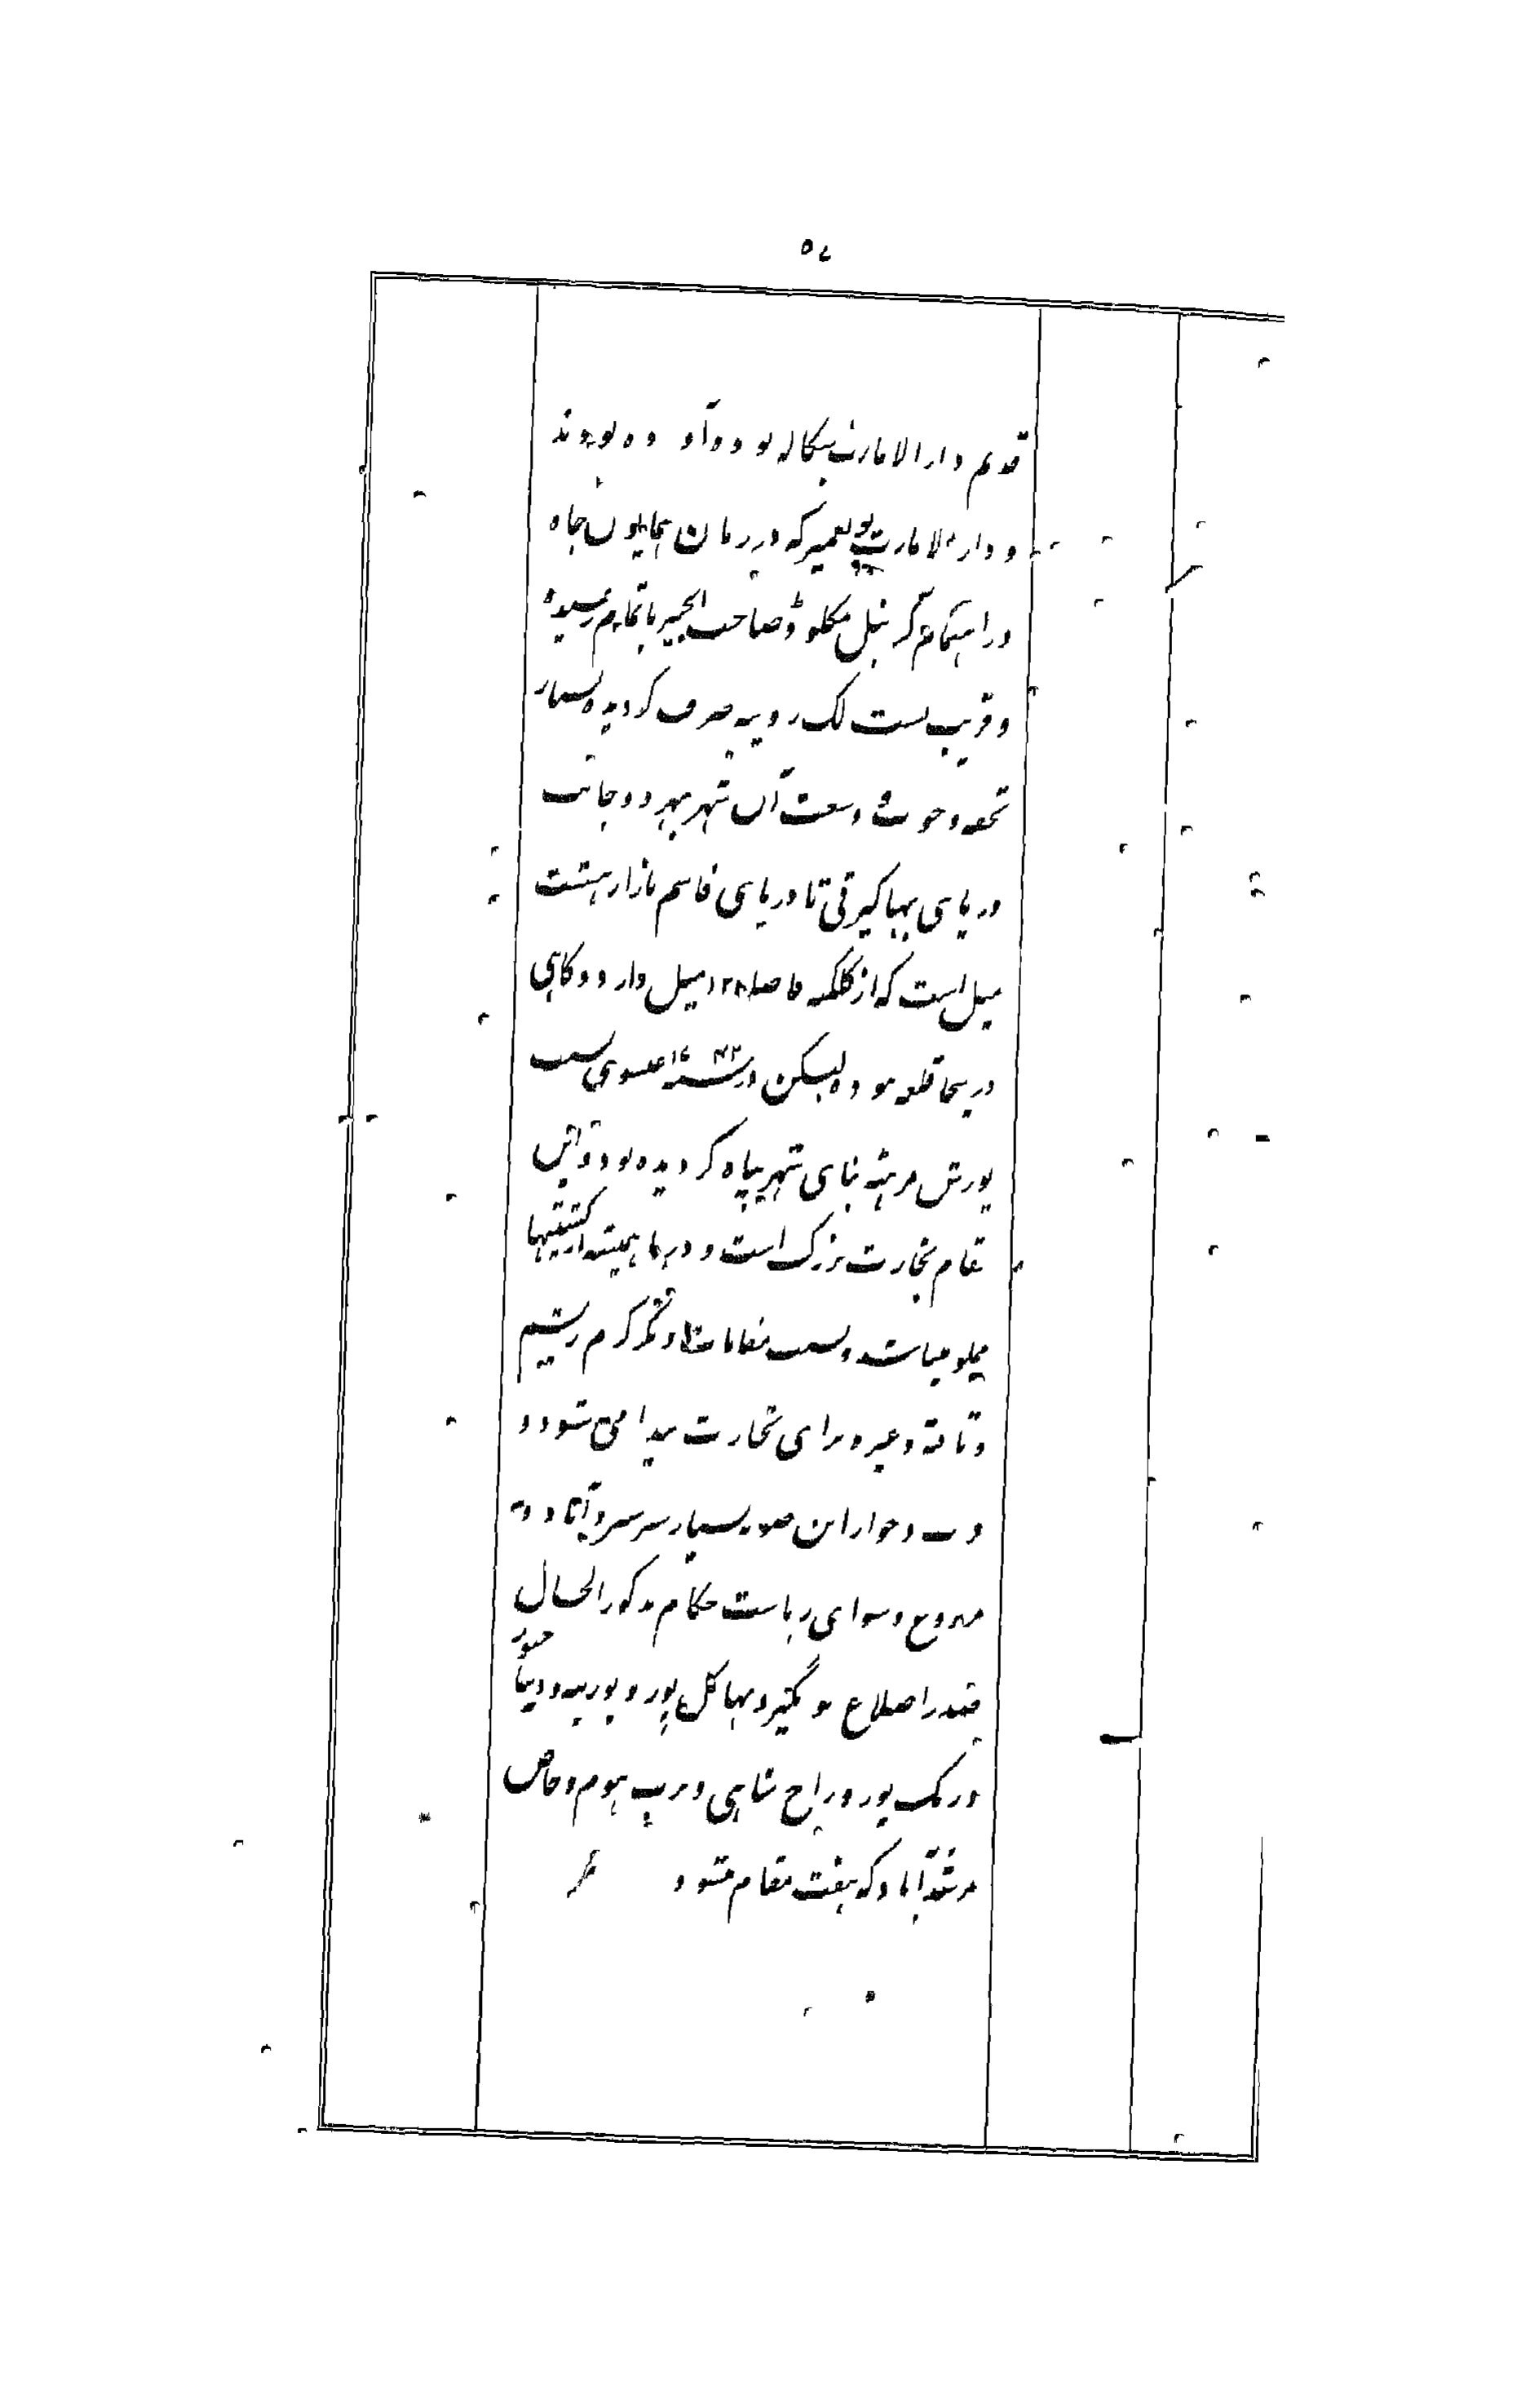 ۵۷
قدیم دارالامارت بنگاله بوده و
و دارالامارت نو تعمیر که در زمان همایون جاه
در اهتمام کرنیل مکلوڈ صاحب انجنیر باتمام رسیده
و قریب بست لک روپیه صرف گردیده بسیار
تحفه و خوش وسعت آن شهر بهر دو جانب
دریای بهاگیرتی تا دریای قاسم بازار هشت
میل است که از کلکته فاصله ۱۲۸ میل دارد و گاهی
درینجا قلعه نبوده لیکن در سنه ۱۷۴۲ عیسوی بسبب
یورش مرهٹه بنای شهر پناه گردیده بود و این
مقام تجارت بزرگ است و دریا همیشه از کشتیها
مملو میباشد و بنسبت مقامات دیگر کرم ریشم
و تافته وغیره برای تجارت پیدا می شود و
و جوار این صوبه بسیار سرسبز و آباد و
و سوای ریاست حکام مذکور الحال
چند در اضلاع مونگیر و بهاگل پور و پورنیه و دیناجپور
و رنگ پور و راج شاهی و بیربهوم و خاص
مرشدآباد که هفت مقام میشود